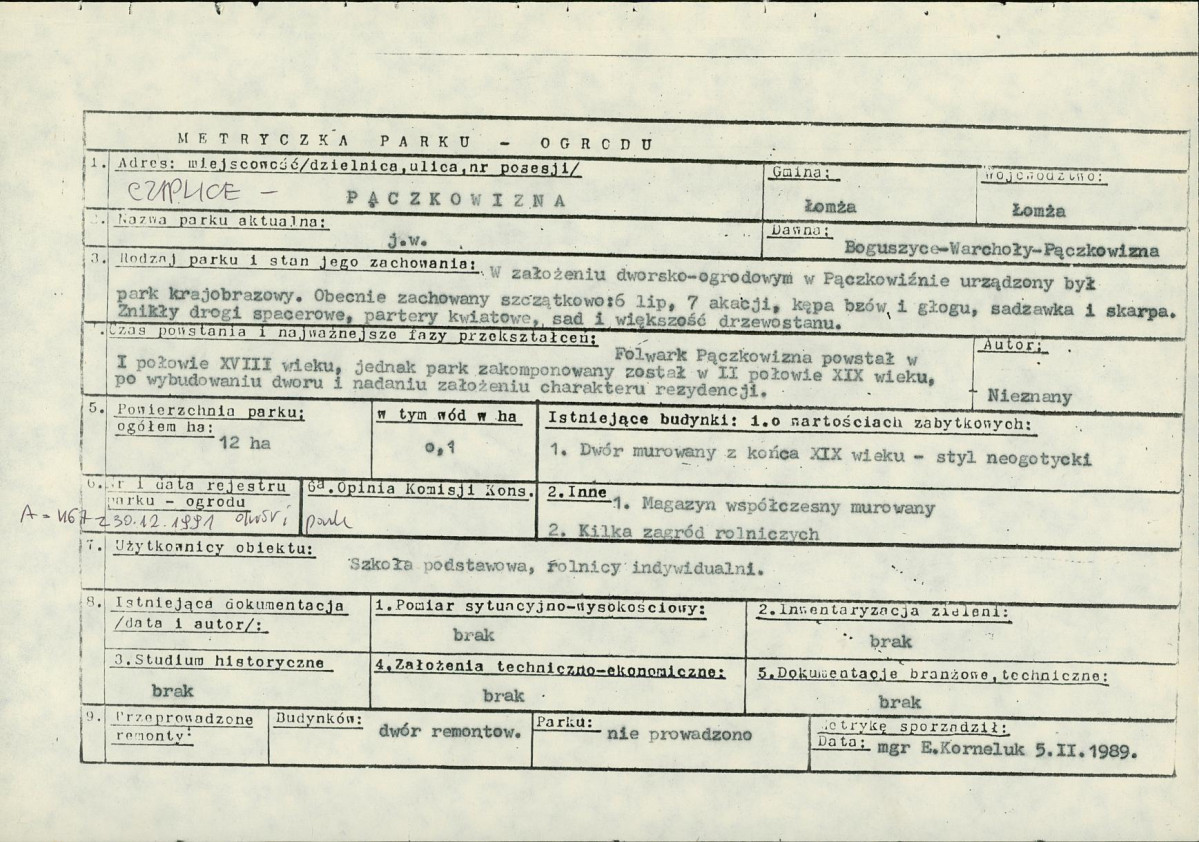 METRYCZKA PARKU - OGRODU
1. Adres: miejscowość/dzielnica,ulica,nr posesji/
CZAPLICE -
PĄCZKOWIZNA
Gmina:
Łomża
Województwo:
Łomża
2. Nazwa parku aktualna:
j.w.
Dawna:
Boguszyce-Warchoły-Pączkowizna
3. Rodzaj parku i stan jego zachowania: W założeniu dworsko-ogrodowym w Pączkowiźnie urządzony był
park krajobrazowy. Obecnie zachowany szczątkowo:6 lip, 7 akacji, kępa bzów i głogu, sadzawka i skarpa.
Znikły drogi spacerowe, partery kwiatowe, sad i większość drzewostanu.
Czas powstania i najważniejsze fazy przekształceń:
Folwark Pączkowizna powstał w
I połowie XVIII wieku, jednak park zakomponowany został w II połowie XIX wieku,
po wybudowaniu dworu i nadaniu założeniu charakteru rezydencji.
Autor:
Nieznany
5. Powierzchnia parku;
ogółem ha:
12 ha
w tym wód w ha
0,1
Istniejące budynki: 1.o wartościach zabytkowych:
1. Dwór murowany z końca XIX wieku - styl neogotycki
6. Nr i data rejestru
parku - ogrodu
A-467 z 30.12.1991
6a. Opinia Komisji Kons.
park
2. Inne
1. Magazyn współczesny murowany
2. Kilka zagród rolniczych
7. Użytkownicy obiektu:
Szkoła podstawowa, rolnicy indywidualni.
8. Istniejąca dokumentacja
/data i autor/:
1.Pomiar sytuacyjno-wysokościowy:
brak
2.Inwentaryzacja zieleni:
brak
3.Studium historyczne
brak
4.Założenia techniczno-ekonomiczne:
brak
5.Dokumentacje branżowe,techniczne:
brak
9. Przeprowadzone
remonty:
Budynków:
dwór remontow.
Parku:
nie prowadzono
Metrykę sporządził:
Data: mgr E.Korneluk 5.II.1989.